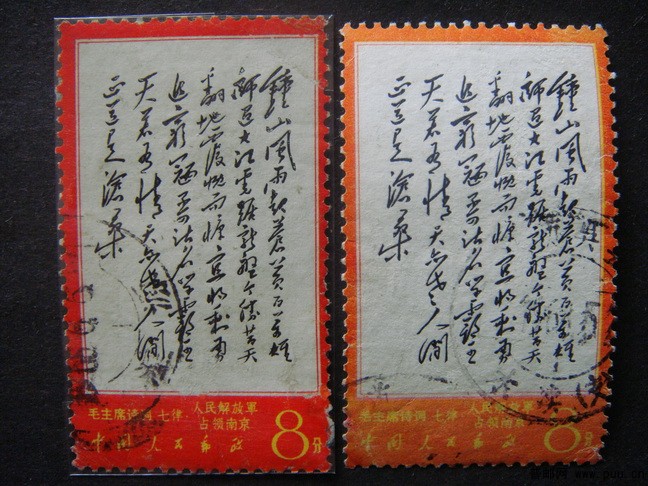 鐘山風雨起蒼黃百万雄
師过大江虎踞龍盤今勝昔天
翻地覆慨而慷宜將剩勇
追窮寇不可沽名学霸王
天若有情天亦老人间
正道是滄桑
毛主席诗词 七律 人民解放軍
占领南京
中国人民邮政 8分
鐘山風雨起蒼黃百万雄
師过大江虎踞龍盤今勝昔天
翻地覆慨而慷宜將剩勇
追窮寇不可沽名学霸王
天若有情天亦老人间
正道是滄桑
毛主席诗词 七律 人民解放軍
占领南京
中国人民邮政 8分